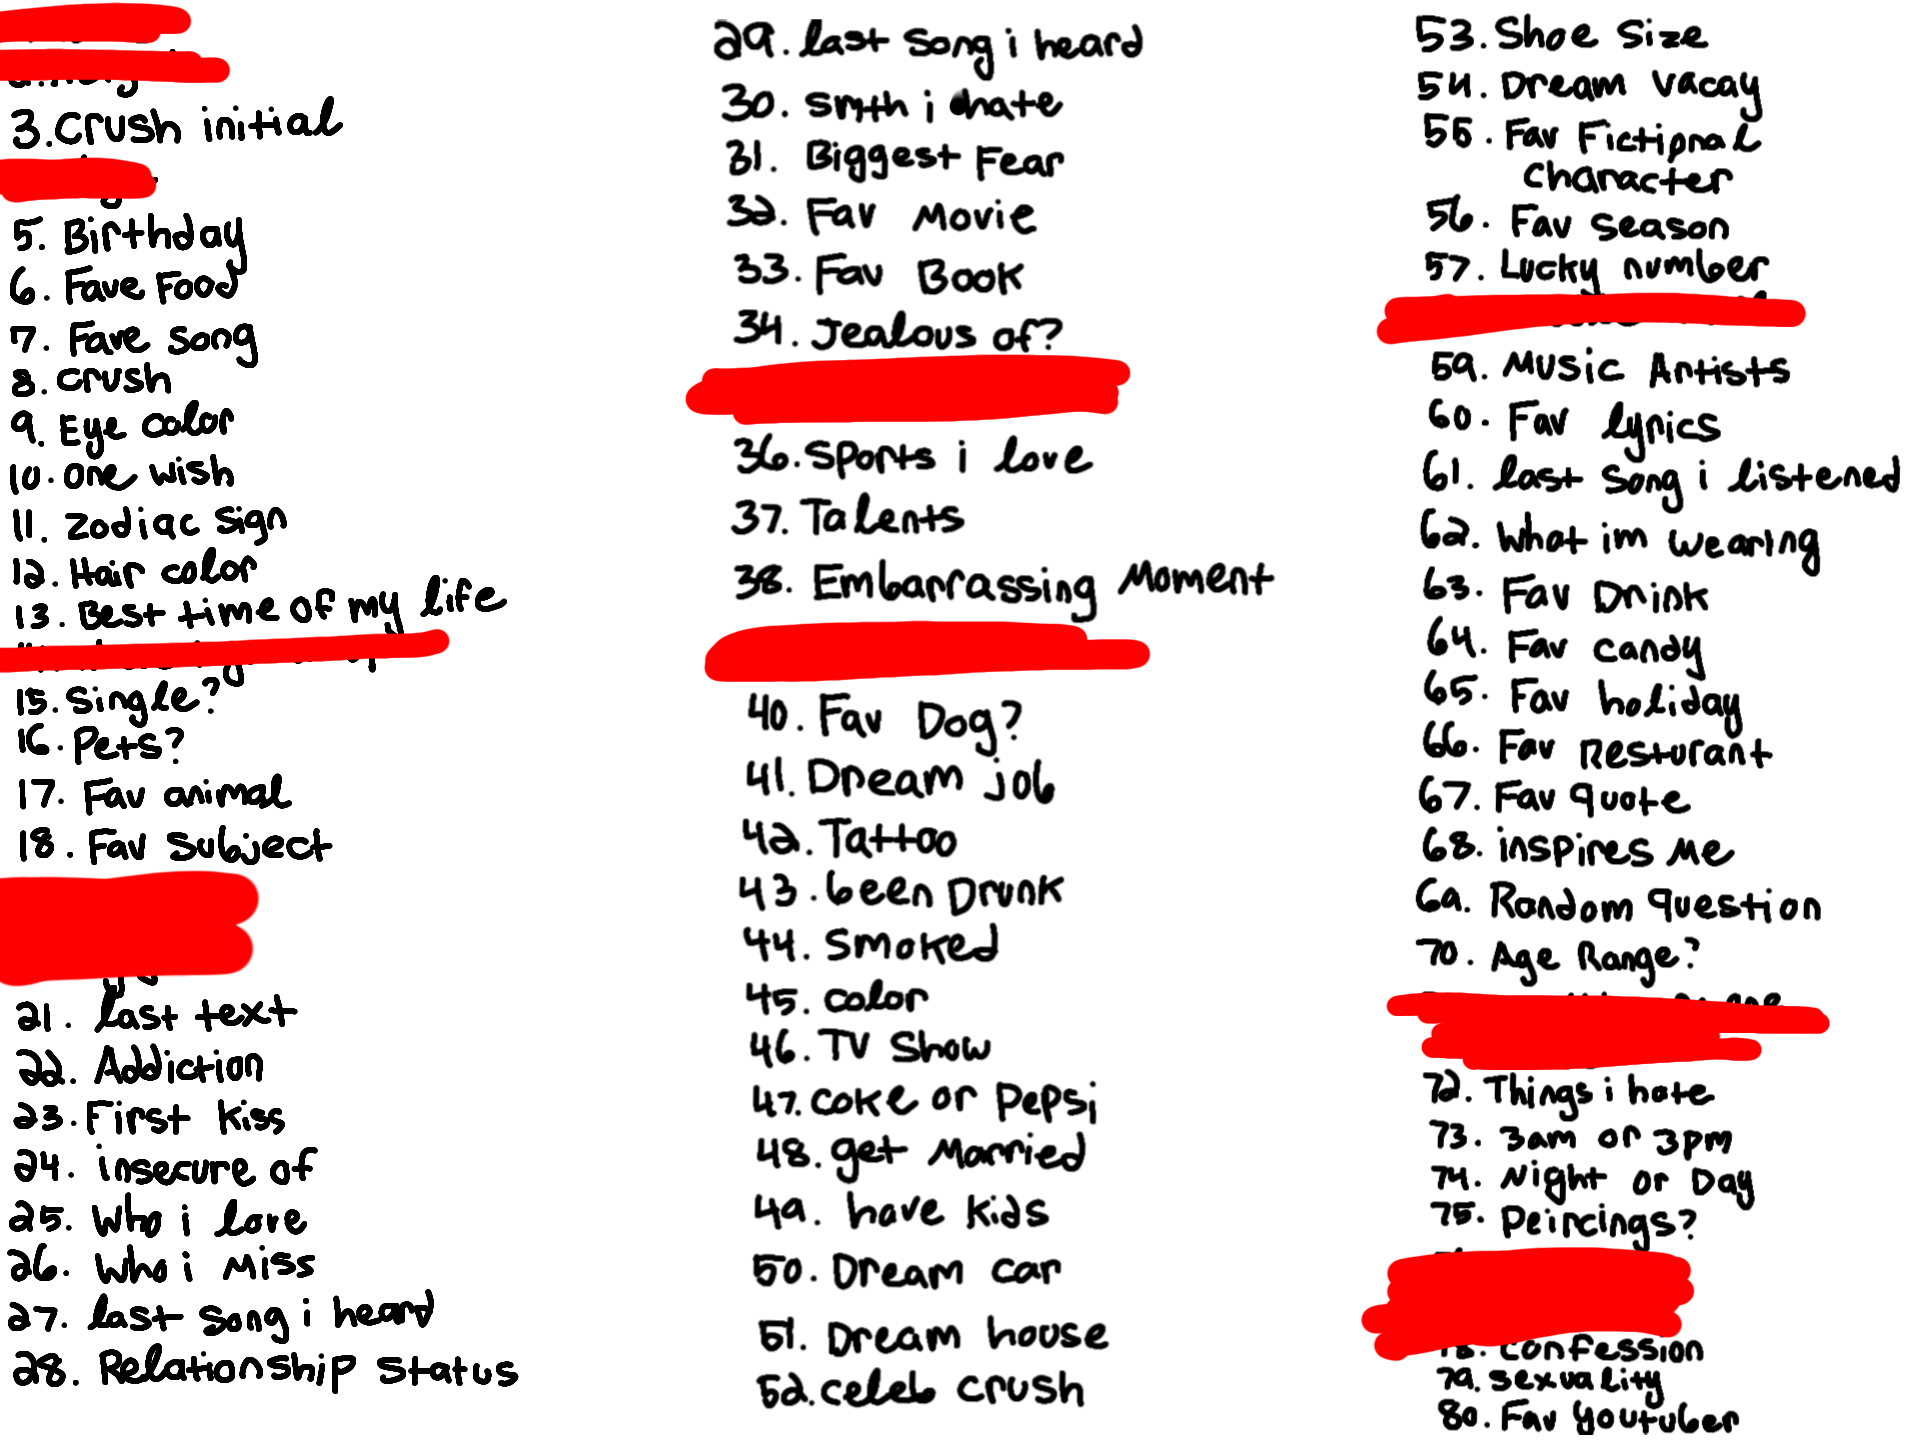 3. Crush initial
5. Birthday
6. Fave Food
7. Fave song
8. crush
9. Eye color
10. one wish
11. zodiac sign
12. Hair color
13. Best time of my life
15. Single?
16. Pets?
17. Fav animal
18. Fav subject
21. last text
22. Addiction
23. First kiss
24. insecure of
25. Who i love
26. Who i Miss
27. last song i heard
28. Relationship status
29. last song i heard
30. smth i hate
31. Biggest Fear
32. Fav Movie
33. Fav Book
34. Jealous of?
36. Sports i love
37. Talents
38. Embarrassing Moment
40. Fav Dog?
41. Dream job
42. Tattoo
43. been Drunk
44. Smoked
45. color
46. TV Show
47. coke or Pepsi
48. get Married
49. have kids
50. Dream car
51. Dream house
52. celeb crush
53. Shoe Size
54. Dream vacay
55. Fav Fictional
character
56. Fav season
57. Lucky number
59. Music Artists
60. Fav lyrics
61. last song i listened
62. What im wearing
63. Fav Drink
64. Fav candy
65. Fav holiday
66. Fav Resturant
67. Fav quote
68. inspires Me
69. Random question
70. Age Range?
72. Things i hate
73. 3am or 3pm
74. Night or Day
75. Peircings?
78. confession
79. sexuality
80. Fav Youtuber